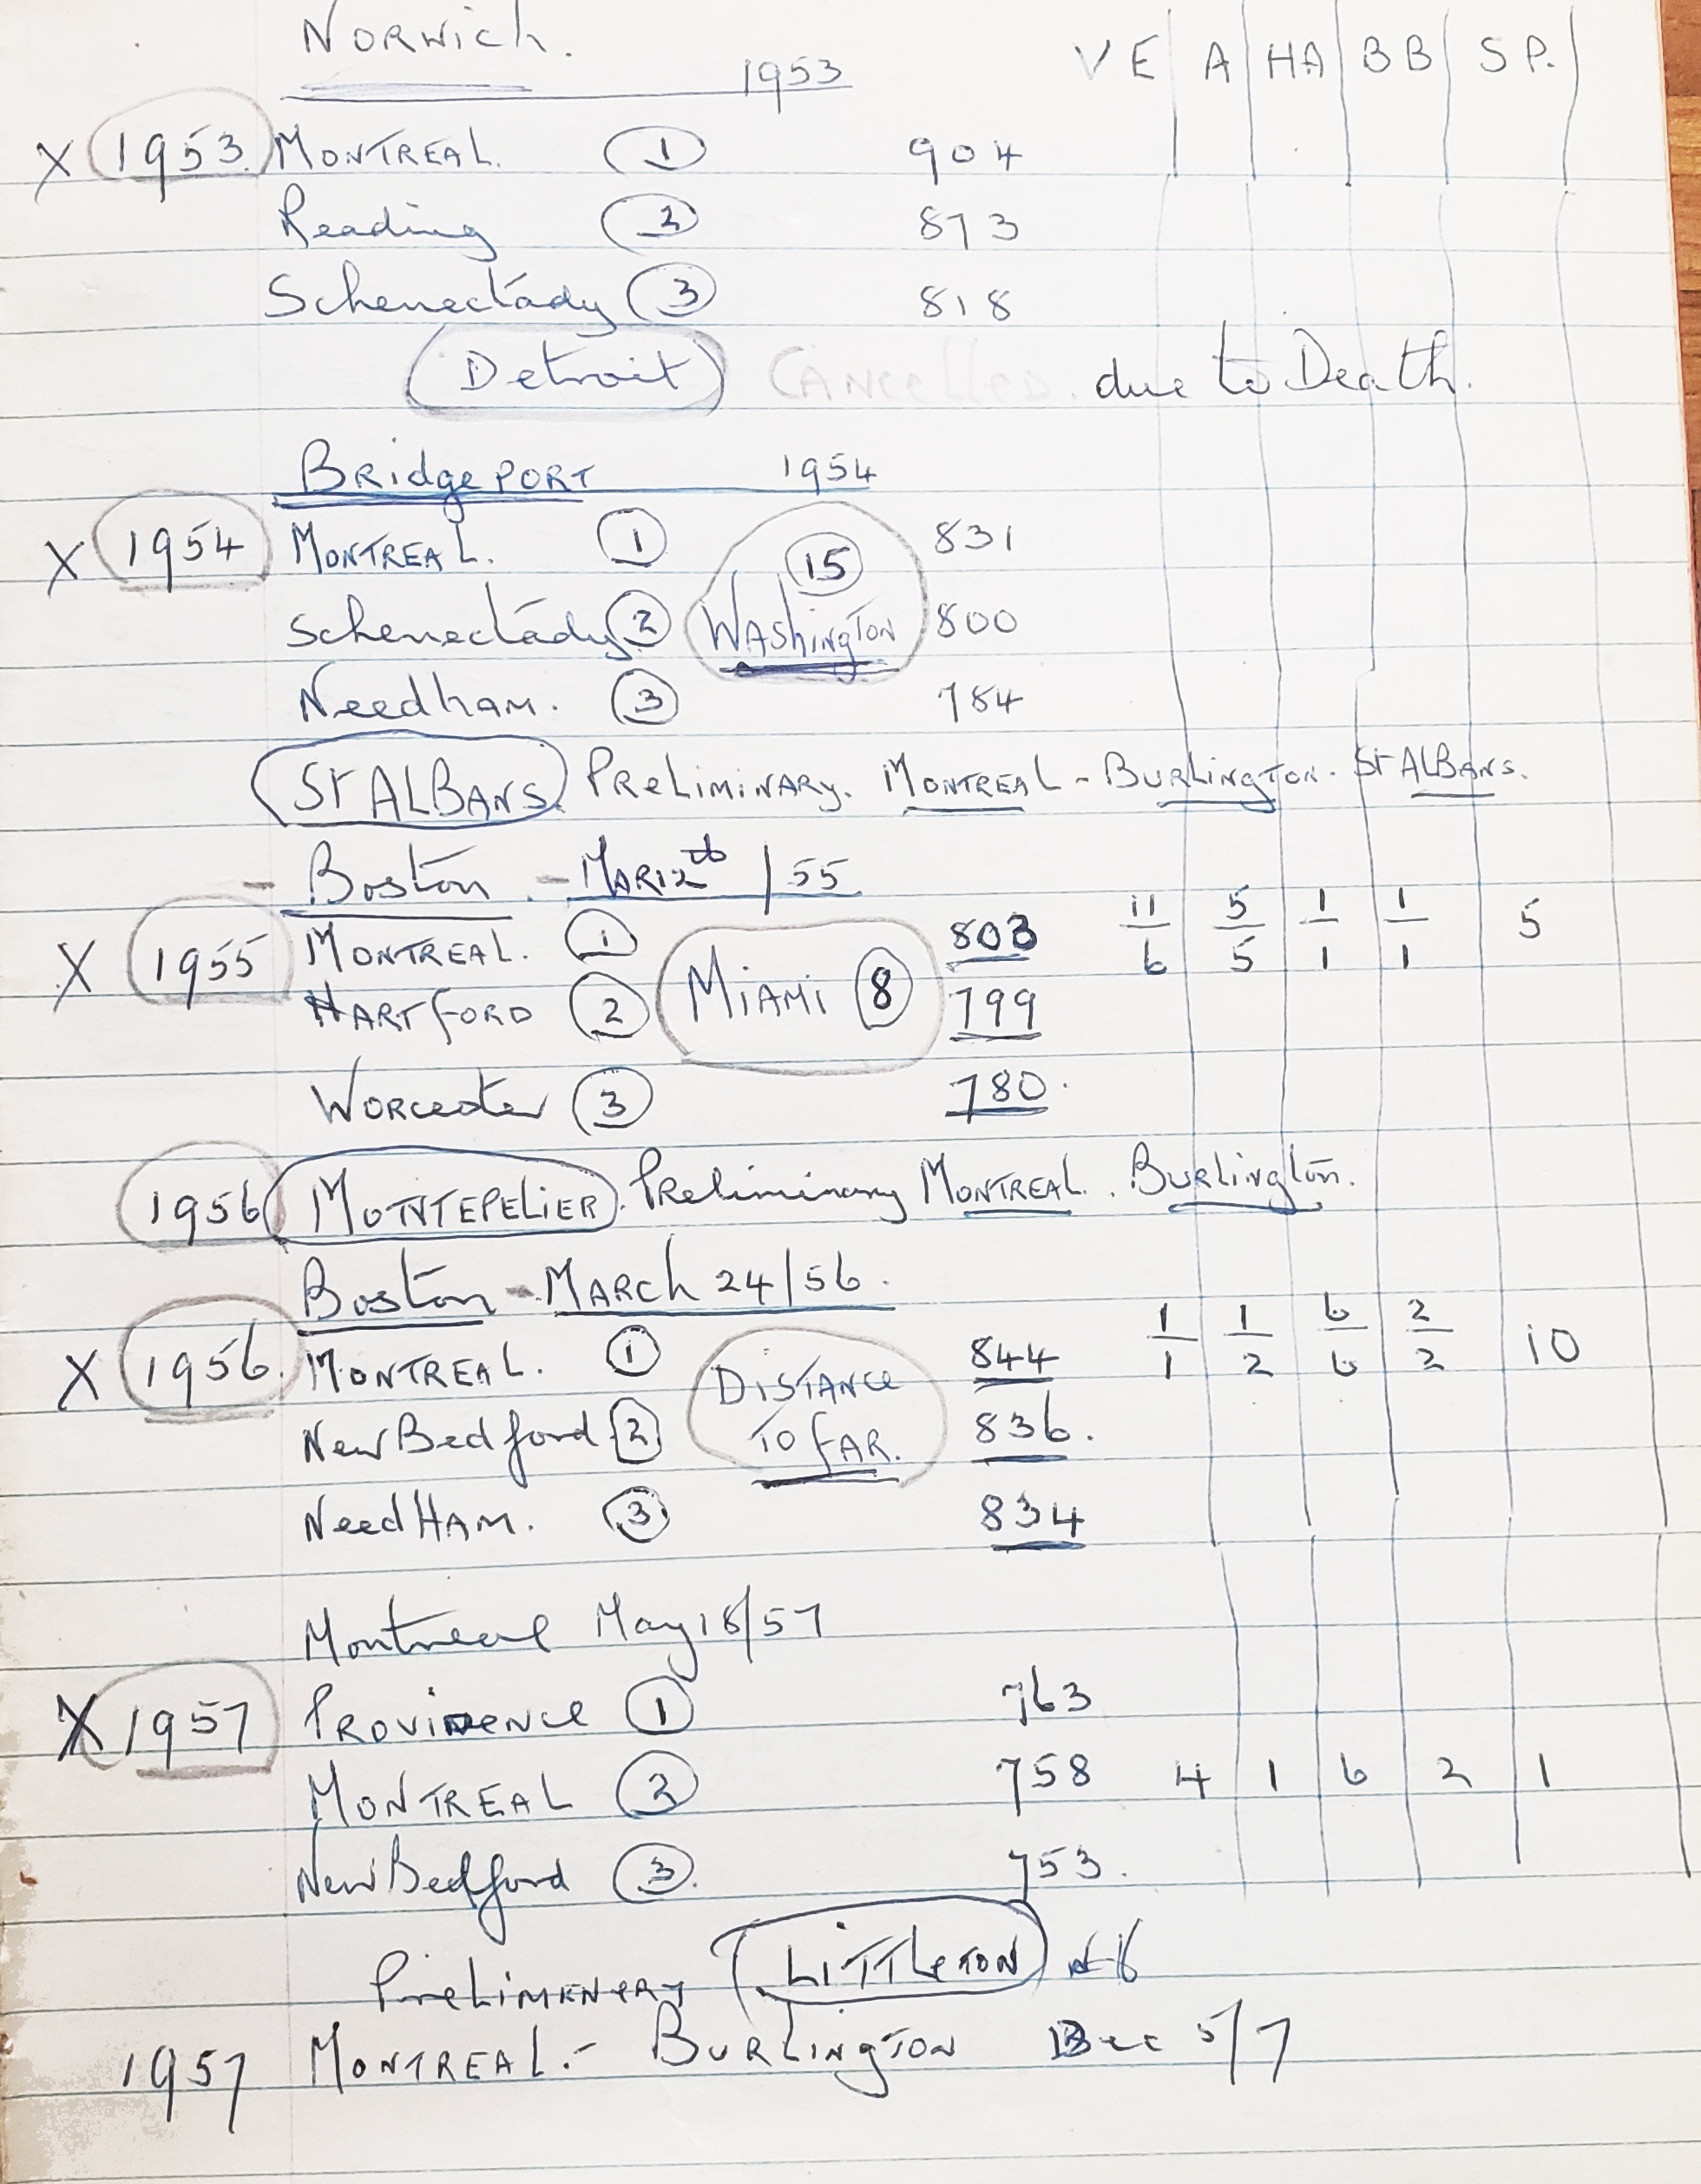 Norwich. 1953 VE A HA BB SP.
X 1953 MONTREAL. 1 904
Reading 2 873
Schenectady 3 818
Detroit Cancelled. due to Death.
BRidgePORT 1954
X 1954 MONTREAL. 1 15 831
Schenectady 2 WAShingTON 800
Needham. 3 784
ST ALBANS. PReLiMINARY. MONTREAL - BURLingTON. ST ALBans.
- Boston. - MAR 12th / 55
X 1955 MONTREAL. 1 803 11/6 5/5 1/1 1/1 5
HARTfORD 2 MiAMi 8 799
WORcester 3 780.
1956 MOTNTEPELiER. PReliminary MONTREAL. Burlington.
Boston - MARch 24/56.
X 1956. MONTREAL. 1 DiSTANce 844 1/1 1/2 6/6 2/2 10
New Bedford 2 TO FAR. 836.
Need HAM. 3 834
Montreal May 18/57
X 1957 PROViDENce 1 763
MONTREAL 2 758 4 1 6 2 1
New Bedford 3. 753.
PReLiMENERY LiTTLeTON
1957 MONTREAL. - BURLingTON Dec 5/7